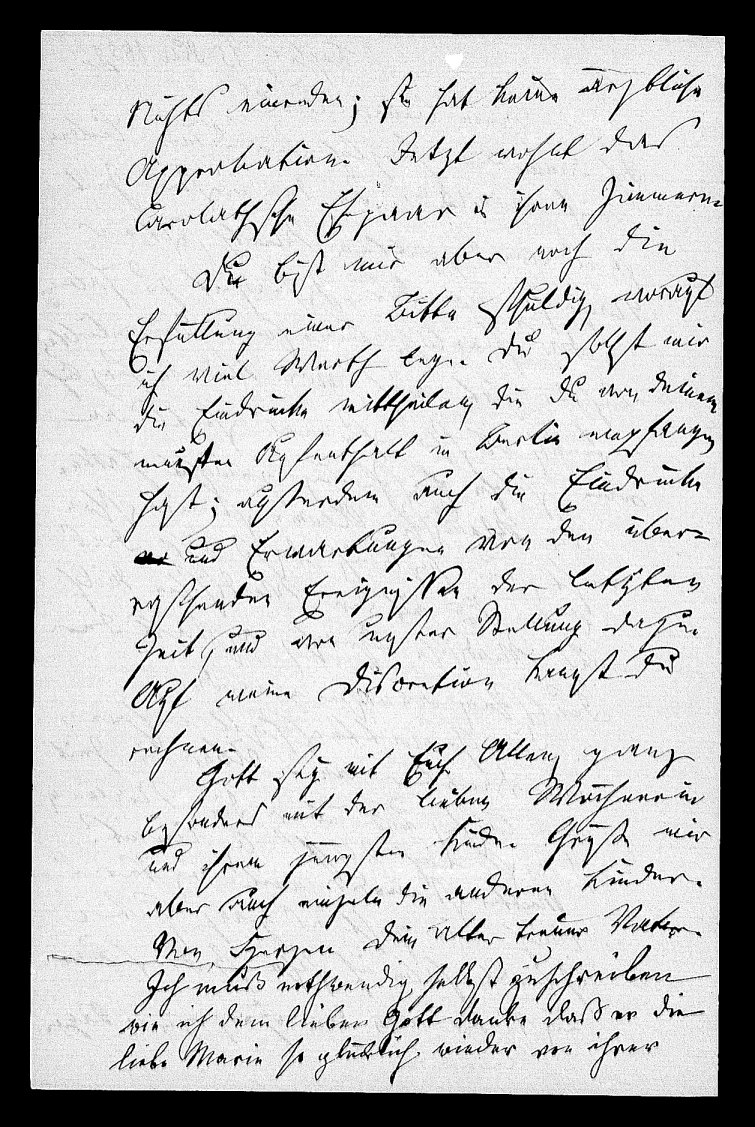 Nichts einwenden; sie hat keine ärztliche
Approbation. Jetzt wohnt das
Carolathsche Ehepaar in ihren Zimmern.
Du bist mir aber noch die
Erfüllung einer Bitte schuldig, worauf
ich viel Werth lege. Du sollst mir
die Eindrücke mittheilen, die Du von Deinem
neusten Aufenthalt in Berlin empfangen
hast; außerdem auch die Eindrücke
und Erwartungen von den über-
raschenden Ereignissen der letzten
Zeit, und von unsrer Stellung dazu.
Auf meine Discretion kannst Du
rechnen.
Gott sey mit Euch Allen, ganz
besonders mit der lieben Wöchnerin
und ihrem jüngsten Kinde. Grüße mir
aber auch einzeln die anderen Kinder.
Von Herzen Dein alter treuer Vater.
Ich muß nothwendig selbst zuschreiben
wie ich dem lieben Gott danke daß er die
liebe Marie so glücklich wieder von ihrer